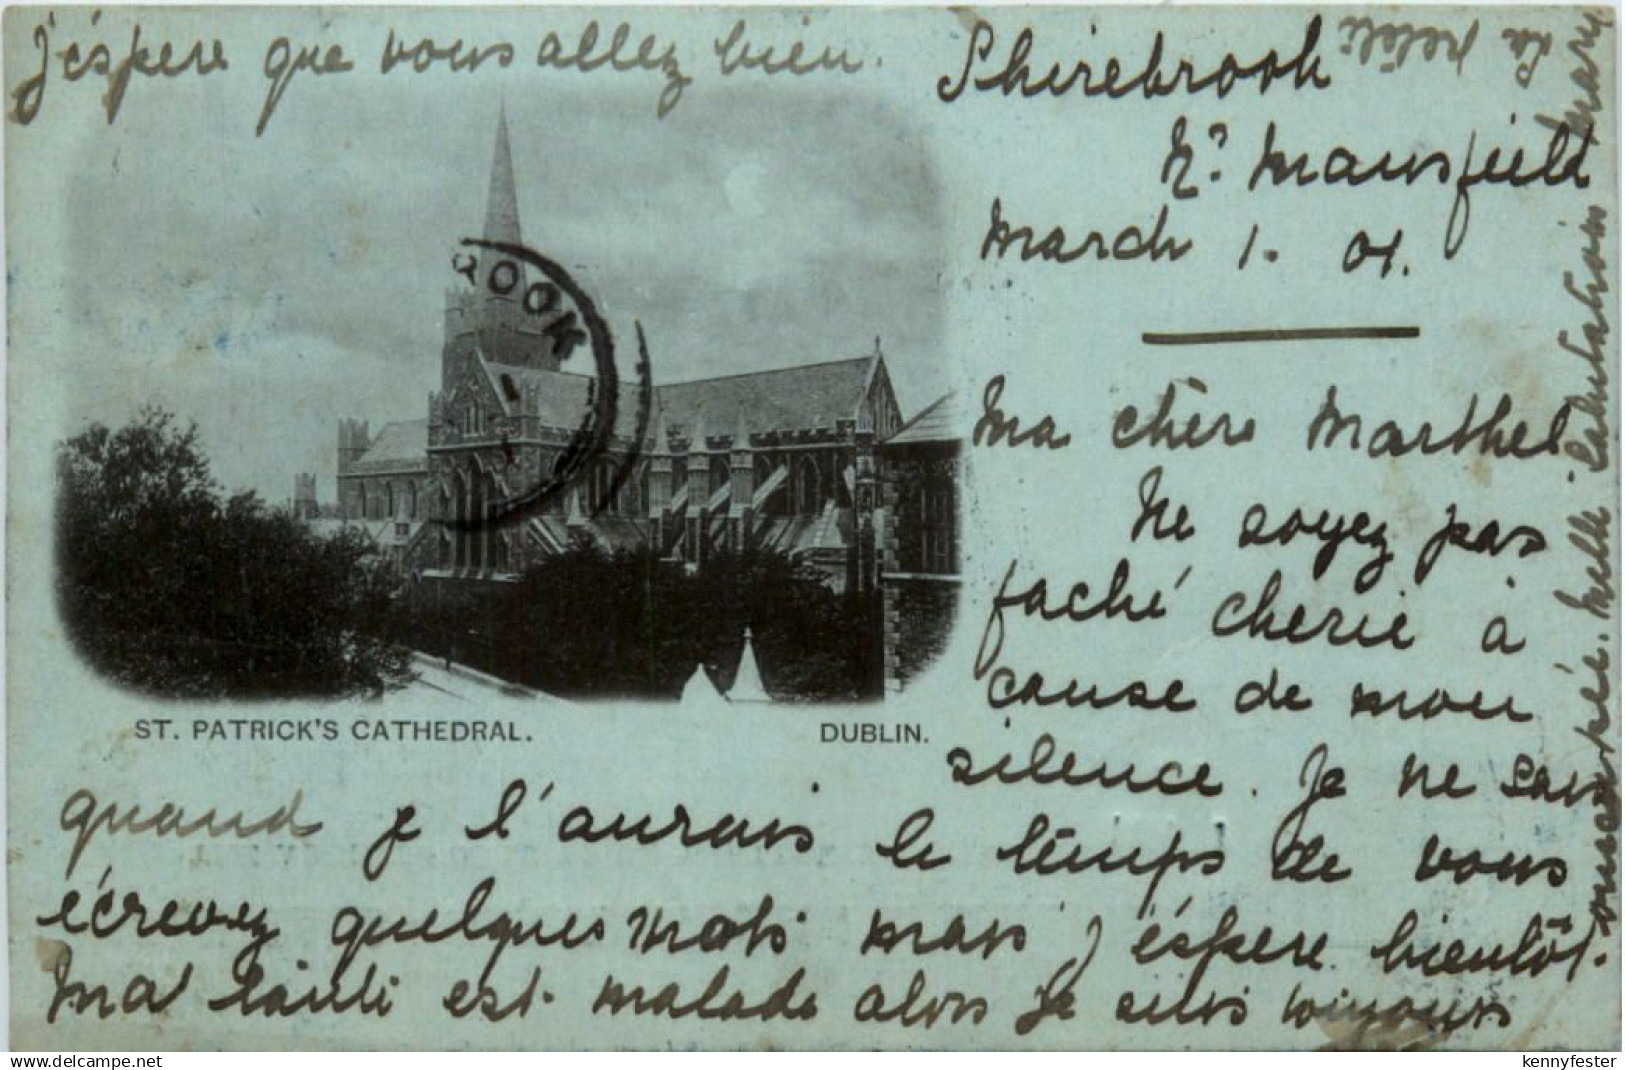 J'éspere que vous allez bien.
Shirebrook
Nr. Mansfield
March 1. 01.
Ma chère Marthe
Ne soyez pas
faché cherie à
cause de mon
silence. Je ne sais
quand je l'aurais le temps de vous
écrevez quelques mots mais j'éspere bientôt.
Ma tante est malade alors je suis toujours
occupée. Mille salutations Mary
La petite
ROOK
ST. PATRICK'S CATHEDRAL. DUBLIN.
www.delcampe.net
kennyfester